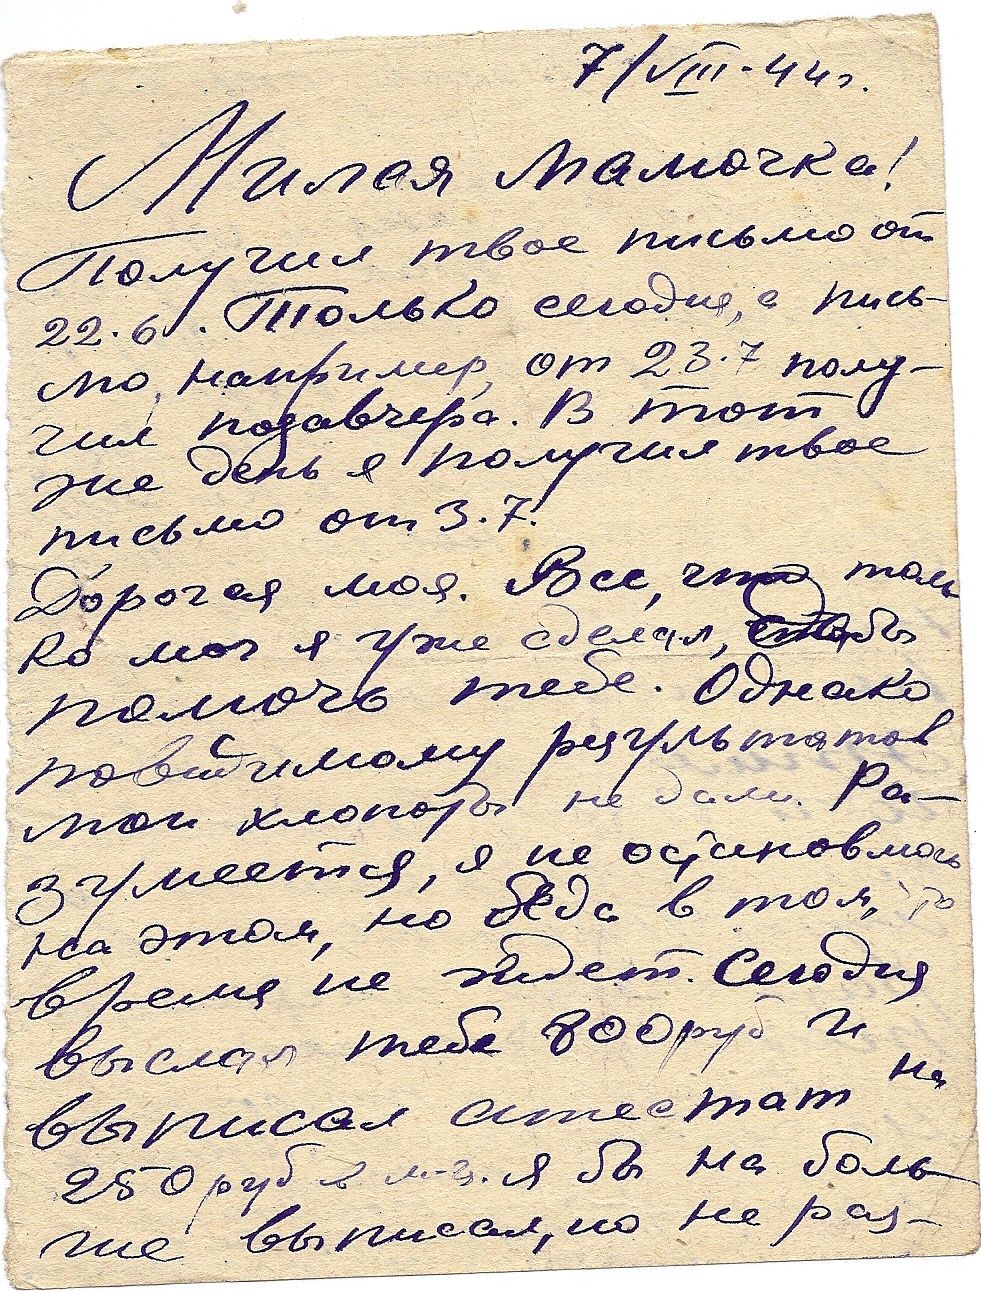 7/VIII-44г.
Милая мамочка!
Получил твое письмо от
22.6. Только сегодня, а пись-
мо, например, от 23.7 полу-
чил позавчера. В тот
же день я получил твое
письмо от 3.7.
Дорогая моя. Все, что толь
ко мог я уже сделал, чтобы
помочь тебе. Однако
повидимому результатов
мои хлопоты не дали. Ра-
зумеется, я не остановлюсь
на этом, но беда в том, что
время не ждет. Сегодня
выслал тебе 800 руб и
выписал атестат на
250 руб в м-ц. я бы на боль
ше выписал, но не раз-